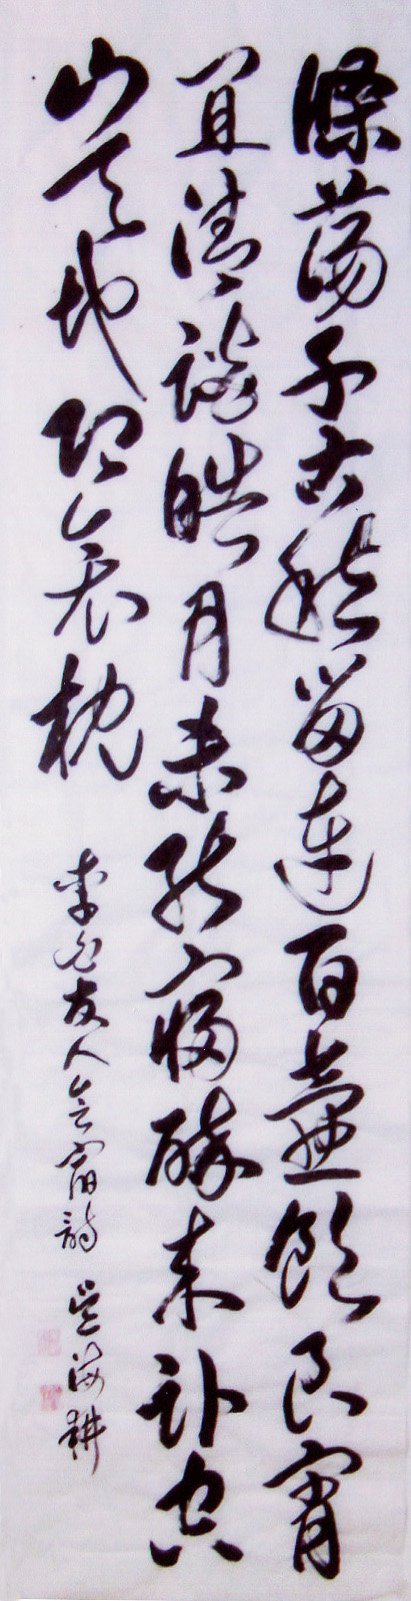 滌蕩千古愁留連百壺飲良宵
宜清談皓月未能寢醉來卧空
山天地即衾枕
李白友人會宿詩